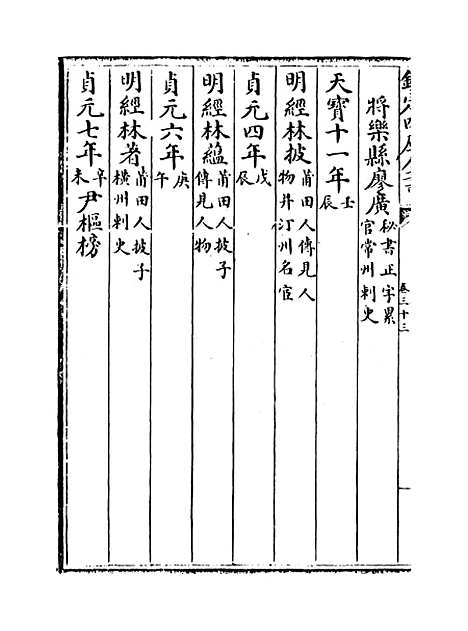 欽定四庫全書
卷三十三
將樂縣廖廣秘書正字累官常州刺史
天寶十一年壬辰
明經林披莆田人傳見人物并汀州名宦
貞元四年戊辰
明經林蘊莆田人披子傳見人物
貞元六年庚午
明經林著莆田人披子橫州刺史
貞元七年辛未尹樞榜